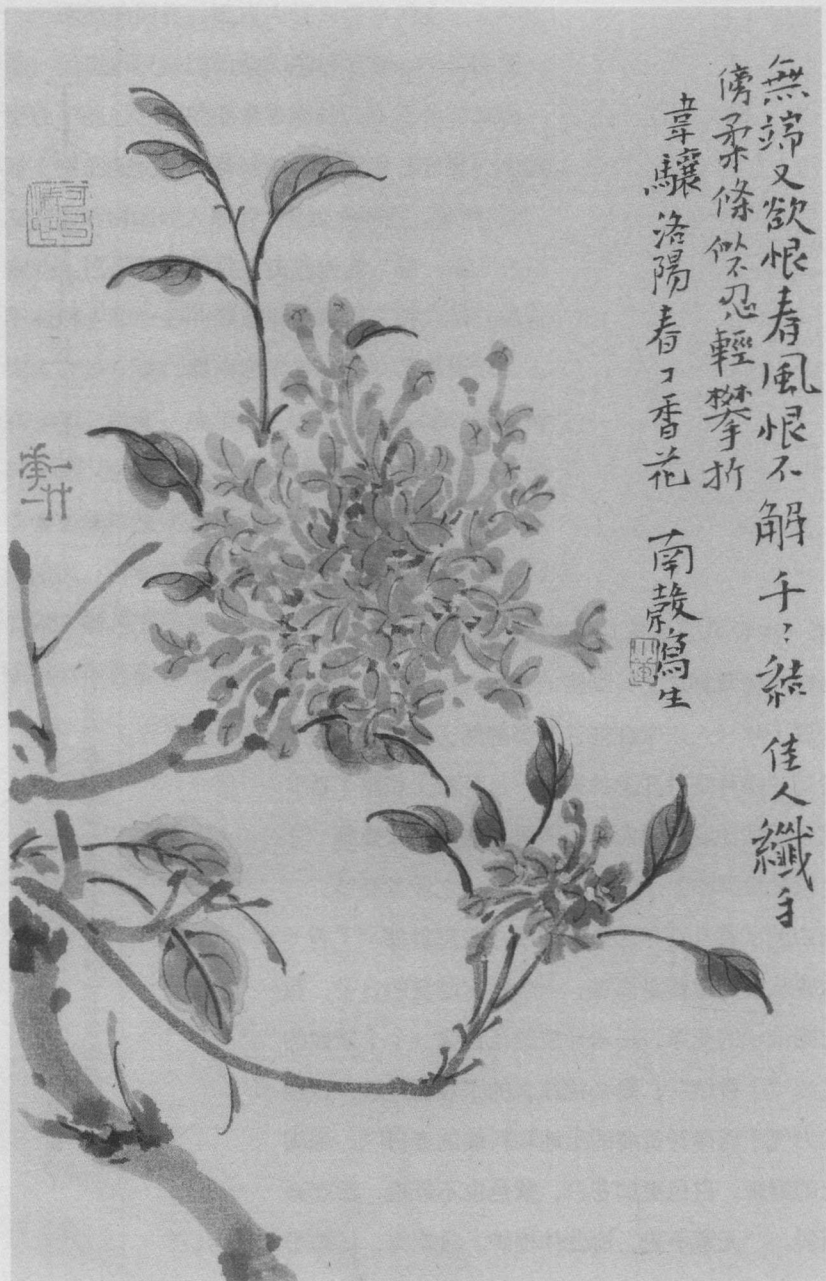 無端又欲恨春風恨不解千〻結佳人纖手
傍柔條似不忍輕攀折
韋驤洛陽春丁香花 南䔍寫生